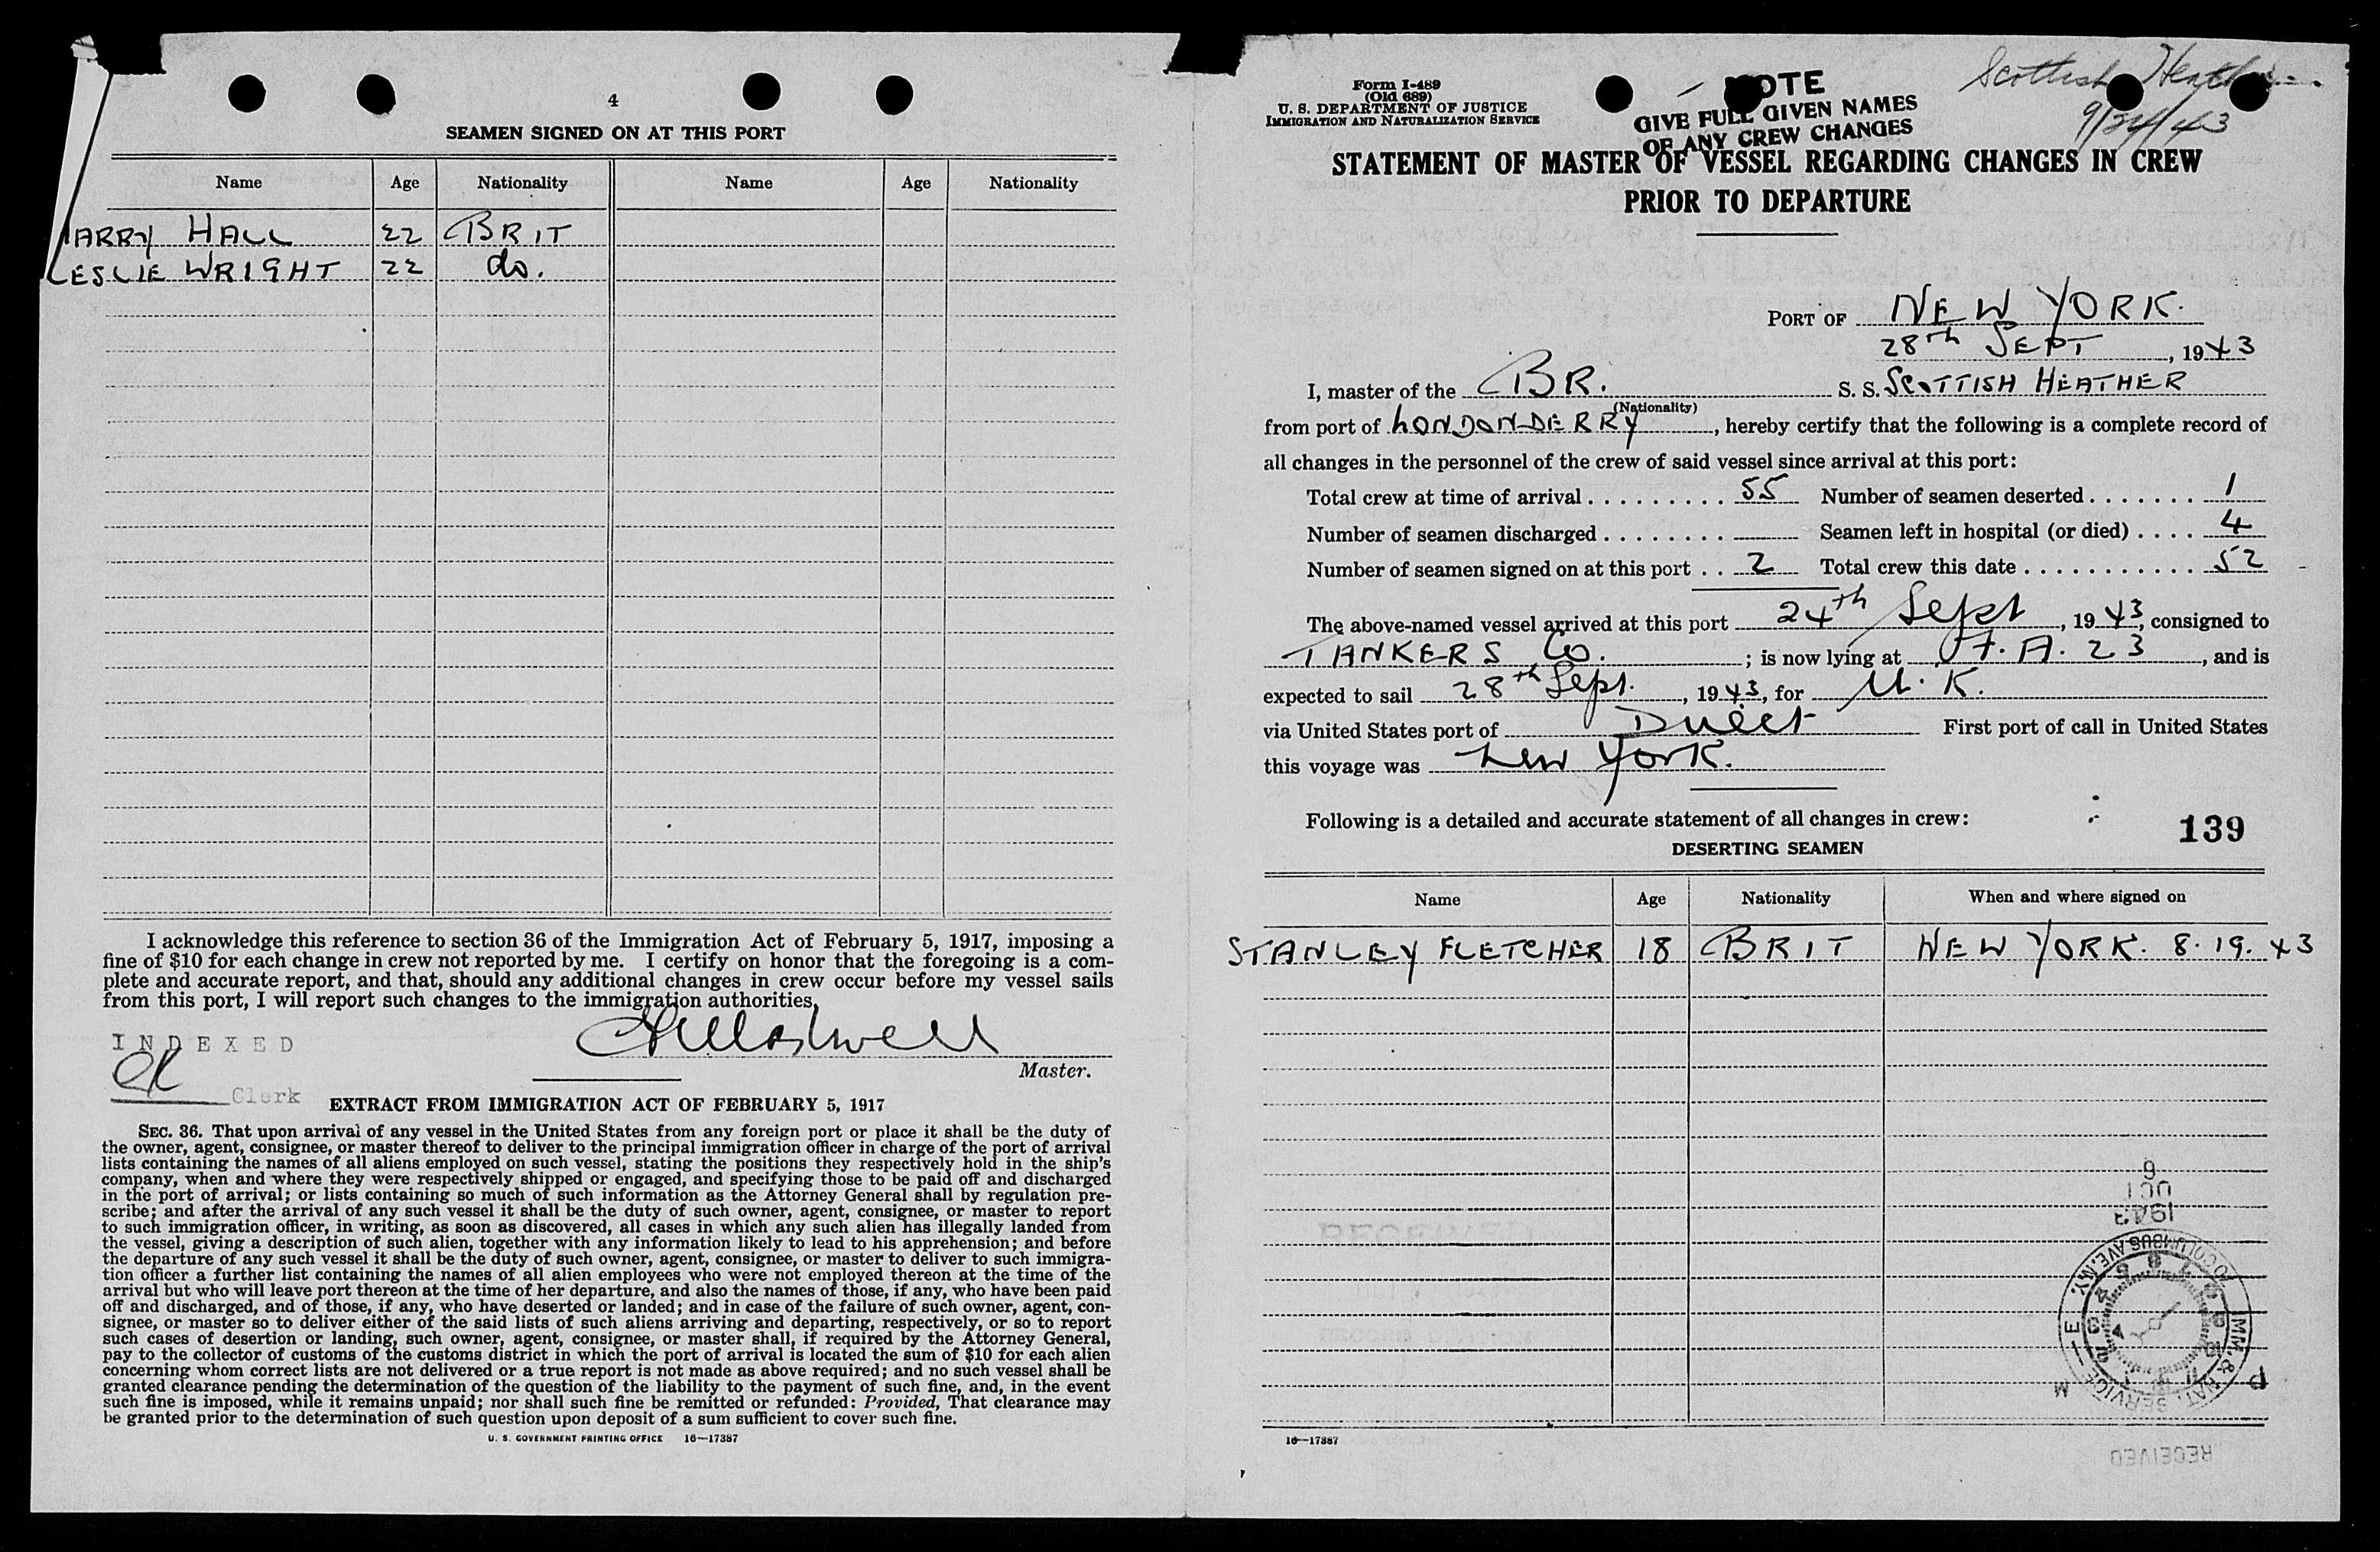 4
SEAMEN SIGNED ON AT THIS PORT
Name Age Nationality Name Age Nationality
ARRY HALL 22 BRIT
LESLIE WRIGHT 22 do.
I acknowledge this reference to section 36 of the Immigration Act of February 5, 1917, imposing a
fine of $10 for each change in crew not reported by me. I certify on honor that the foregoing is a com-
plete and accurate report, and that, should any additional changes in crew occur before my vessel sails
from this port, I will report such changes to the immigration authorities.
INDEXED
Master.
Clerk
EXTRACT FROM IMMIGRATION ACT OF FEBRUARY 5, 1917
SEC. 36. That upon arrival of any vessel in the United States from any foreign port or place it shall be the duty of
the owner, agent, consignee, or master thereof to deliver to the principal immigration officer in charge of the port of arrival
lists containing the names of all aliens employed on such vessel, stating the positions they respectively hold in the ship's
company, when and where they were respectively shipped or engaged, and specifying those to be paid off and discharged
in the port of arrival; or lists containing so much of such information as the Attorney General shall by regulation pre-
scribe; and after the arrival of any such vessel it shall be the duty of such owner, agent, consignee, or master to report
to such immigration officer, in writing, as soon as discovered, all cases in which any such alien has illegally landed from
the vessel, giving a description of such alien, together with any information likely to lead to his apprehension; and before
the departure of any such vessel it shall be the duty of such owner, agent, consignee, or master to deliver to such immigra-
tion officer a further list containing the names of all alien employees who were not employed thereon at the time of the
arrival but who will leave port thereon at the time of her departure, and also the names of those, if any, who have been paid
off and discharged, and of those, if any, who have deserted or landed; and in case of the failure of such owner, agent, con-
signee, or master so to deliver either of the said lists of such aliens arriving and departing, respectively, or so to report
such cases of desertion or landing, such owner, agent, consignee, or master shall, if required by the Attorney General,
pay to the collector of customs of the customs district in which the port of arrival is located the sum of $10 for each alien
concerning whom correct lists are not delivered or a true report is not made as above required; and no such vessel shall be
granted clearance pending the determination of the question of the liability to the payment of such fine, and, in the event
such fine is imposed, while it remains unpaid; nor shall such fine be remitted or refunded: Provided, That clearance may
be granted prior to the determination of such question upon deposit of a sum sufficient to cover such fine.
U. S. GOVERNMENT PRINTING OFFICE 16—17387
Form I-489
(Old 689)
U. S. DEPARTMENT OF JUSTICE
IMMIGRATION AND NATURALIZATION SERVICE
NOTE
GIVE FULL GIVEN NAMES
OF ANY CREW CHANGES
Scottish Heather
9/24/43
STATEMENT OF MASTER OF VESSEL REGARDING CHANGES IN CREW
PRIOR TO DEPARTURE
PORT OF NEW YORK.
28th SEPT, 1943
I, master of the BR. S. S. SCOTTISH HEATHER
(Nationality)
from port of LONDONDERRY, hereby certify that the following is a complete record of
all changes in the personnel of the crew of said vessel since arrival at this port:
Total crew at time of arrival . . . . . . . . . 55 Number of seamen deserted . . . . . . . 1
Number of seamen discharged . . . . . . . . Seamen left in hospital (or died) . . . . 4
Number of seamen signed on at this port . . 2 Total crew this date . . . . . . . . . . . 52
The above-named vessel arrived at this port 24th Sept, 1943, consigned to
TANKERS Co. ; is now lying at A. 23, and is
expected to sail 28th Sept., 1943, for U. K.
via United States port of Direct First port of call in United States
this voyage was New York.
Following is a detailed and accurate statement of all changes in crew:
139
DESERTING SEAMEN
Name Age Nationality When and where signed on
STANLEY FLETCHER 18 BRIT NEW YORK. 8.19.43
9
OCT
1943
COLUMBUS AVE. N.Y.
IMM. & NAT. SERVICE
RECEIVED
16—17387